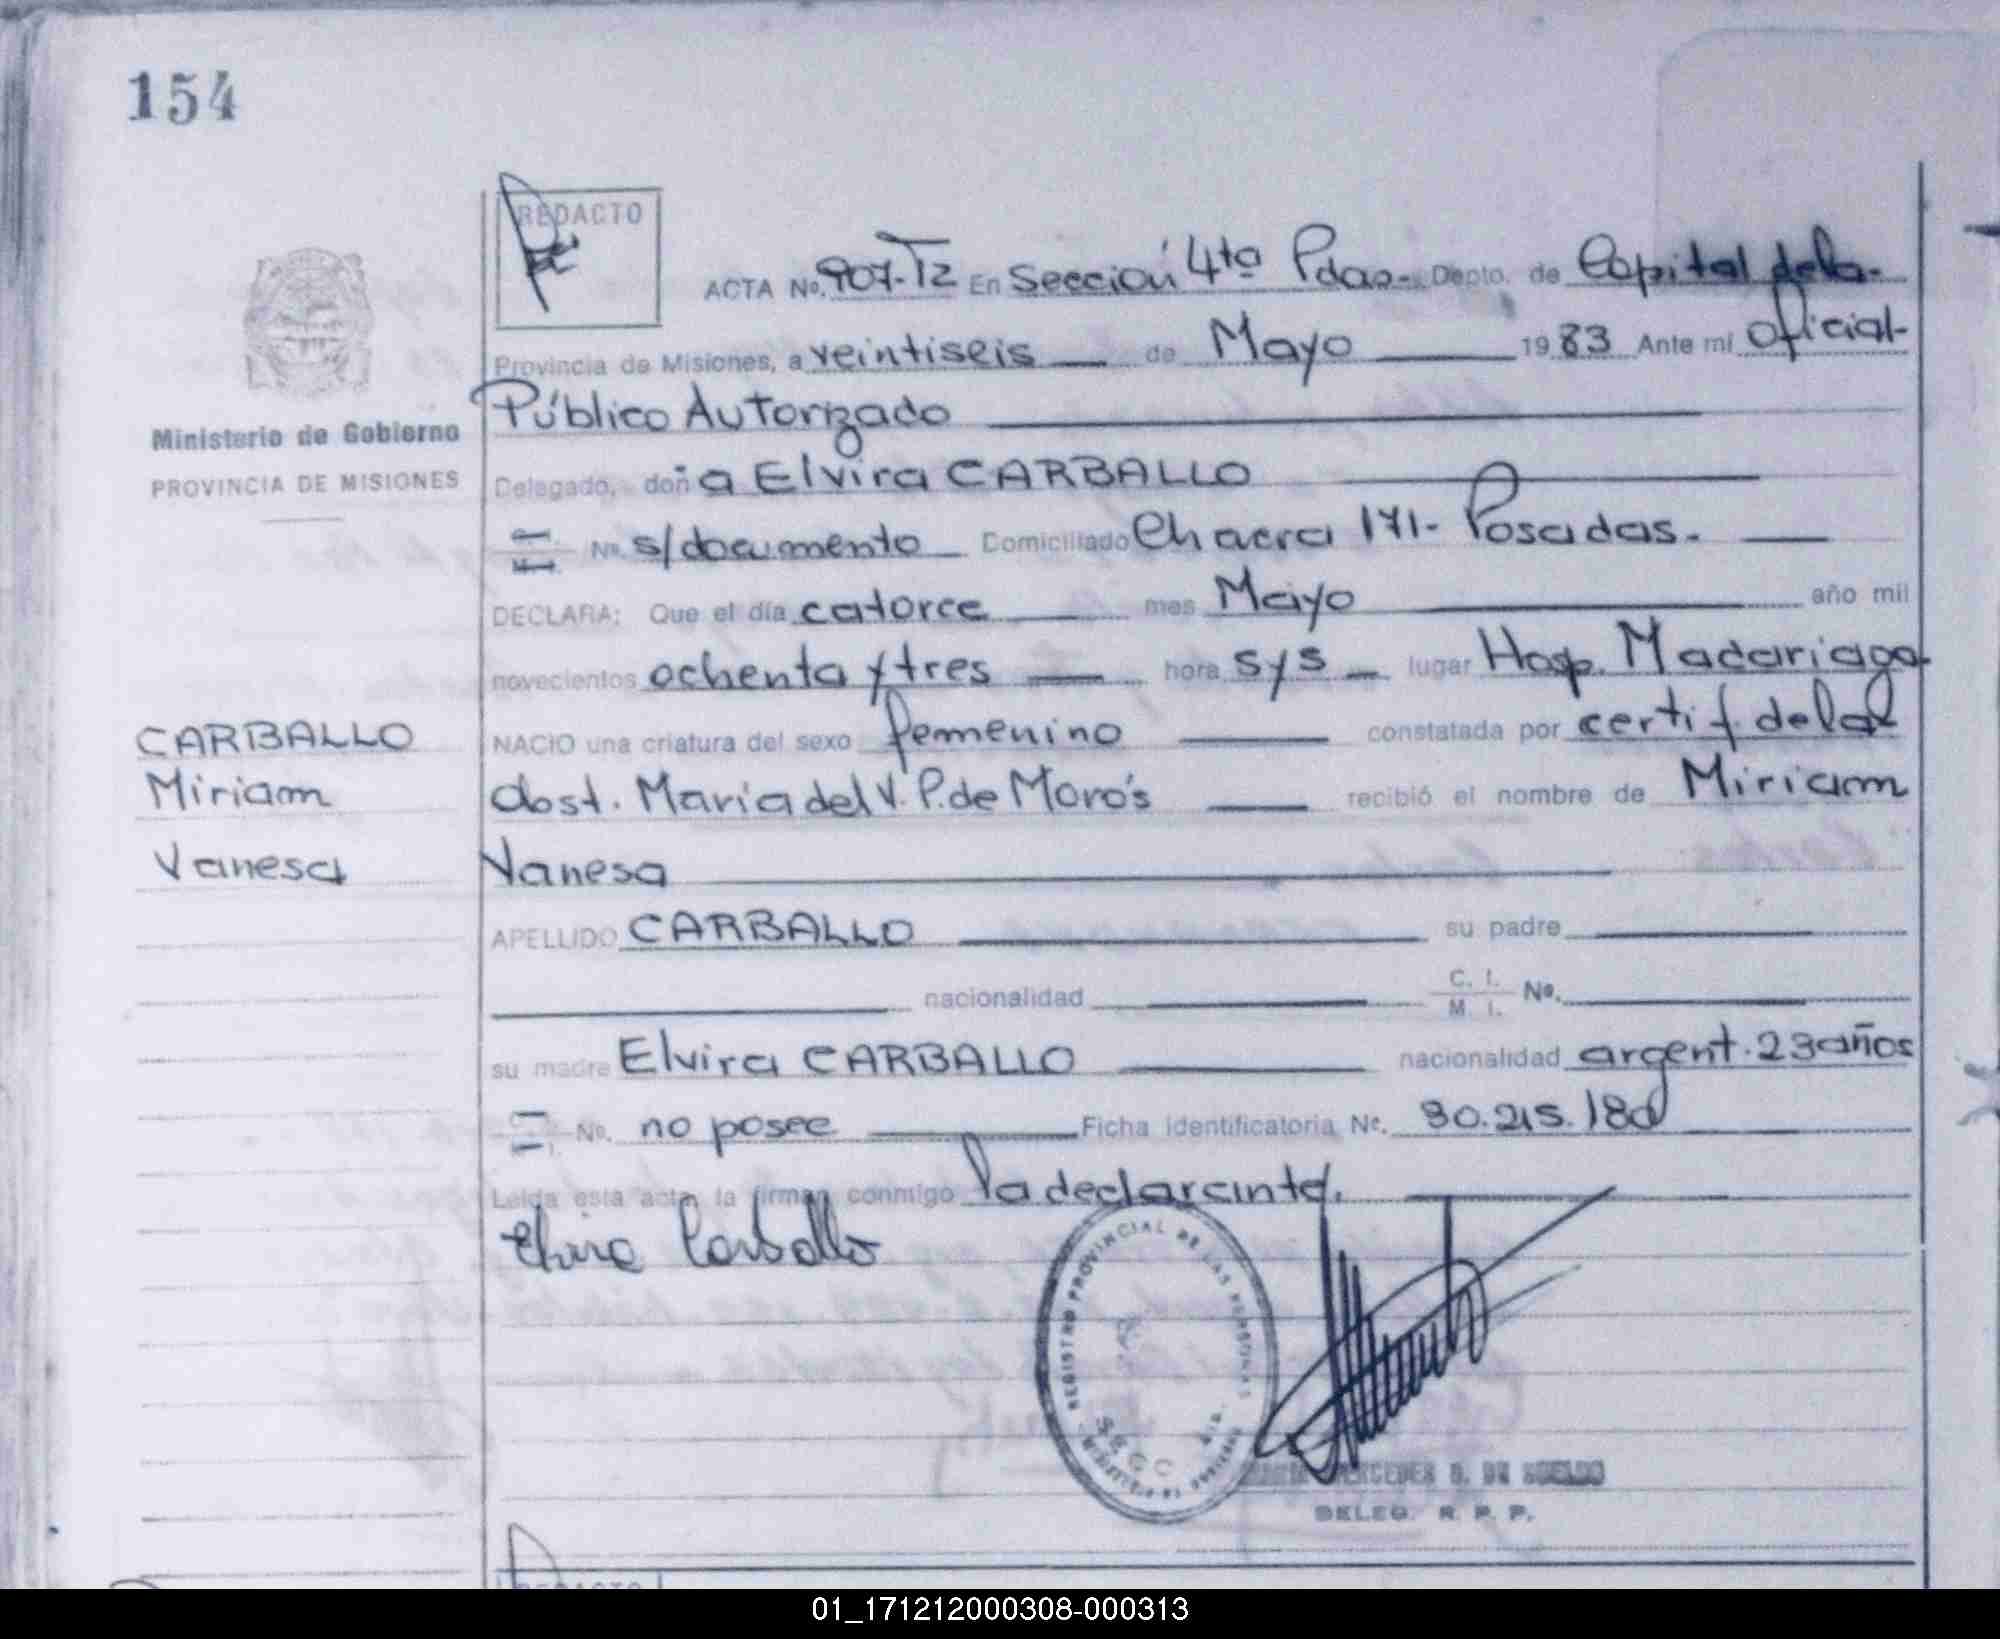 154
REDACTO
ACTA No. 907-T2 En Sección 4ta Pdas- Depto. de Capital de la-
Provincia de Misiones, a veintiseis de Mayo 1983 Ante mí oficial-
Público Autorizado
Ministerio de Gobierno
PROVINCIA DE MISIONES
Delegado, doña Elvira CARBALLO
No. s/documento Domiciliado Chacra 171- Posadas.
DECLARA: Que el día catorce mes Mayo año mil
novecientos ochenta y tres hora s y s lugar Hosp. Madariaga
CARBALLO
NACIO una criatura del sexo femenino constatada por certif. de la
Miriam
obst. Maria del V. P. de Moros recibió el nombre de Miriam
Vanesa
Vanesa
APELLIDO CARBALLO su padre
nacionalidad C. I. M. I. No.
su madre Elvira CARBALLO nacionalidad argent. 23 años
No. no posee Ficha identificatoria No. 30.215.180
Leída esta acta, la firman conmigo la declarante.
Elvira Carballo
REGISTRO PROVINCIAL DE LAS PERSONAS
MERCEDES DE SUELDO
DELEG. R. P. P.
REDACTO
01_171212000308-000313